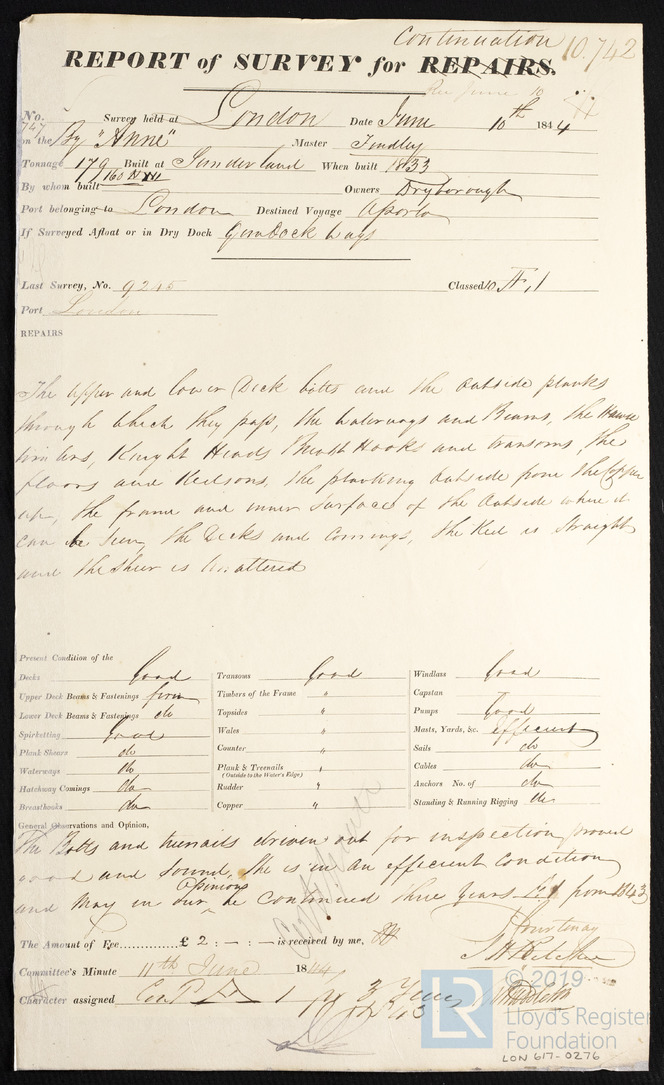 Continuation 10.742
REPORT of SURVEY for REPAIRS.
Rec June 10
No. 747 Survey held at London Date June 10th 1844
on the Bg "Anne" Master Findley
Tonnage 179 Built at Sunderland When built 1833
160 NM
By whom built Owners Dryborough
Port belonging to London Destined Voyage Oporto
If Surveyed Afloat or in Dry Dock
Last Survey, No. 9215 Classed 10 Æ, 1
Port London
REPAIRS
The upper and lower Deck bolts and the outside planks
through which they pass, the waterways and Beams, the Hawse
timbers, Knight Heads Breast Hooks and transoms, the
floors and Keelsons, the planking outside from the Copper
up, the frame and inner surface of the outside where it
can be seen, the Decks and Comings, the Keel is straight
and the sheer is unaltered
Present Condition of the
Decks Good
Upper Deck Beams & Fastenings firm
Lower Deck Beams & Fastenings do
Spirketting Good
Plank Shears do
Waterways do
Hatchway Comings do
Breasthooks do
Transoms Good
Timbers of the Frame "
Topsides "
Wales "
Counter "
Plank & Treenails "
(Outside to the Water's Edge)
Rudder "
Copper "
Windlass Good
Capstan
Pumps Good
Masts, Yards, &c. efficient
Sails do
Cables do
Anchors No. of do
Standing & Running Rigging do
General Observations and Opinion,
The Bolts and treenails driven out for inspection proved
good and sound, She is in an efficient condition
and may in our Opinion be continued three years from 1843
Courtenay
The Amount of Fee............... £ 2 : - : - is received by me,
Committee's Minute 11th June 1844
Character assigned Cont 1 for 3 Years
from 43
LR
© 2019
Lloyd's Register
Foundation
LON 617-0276